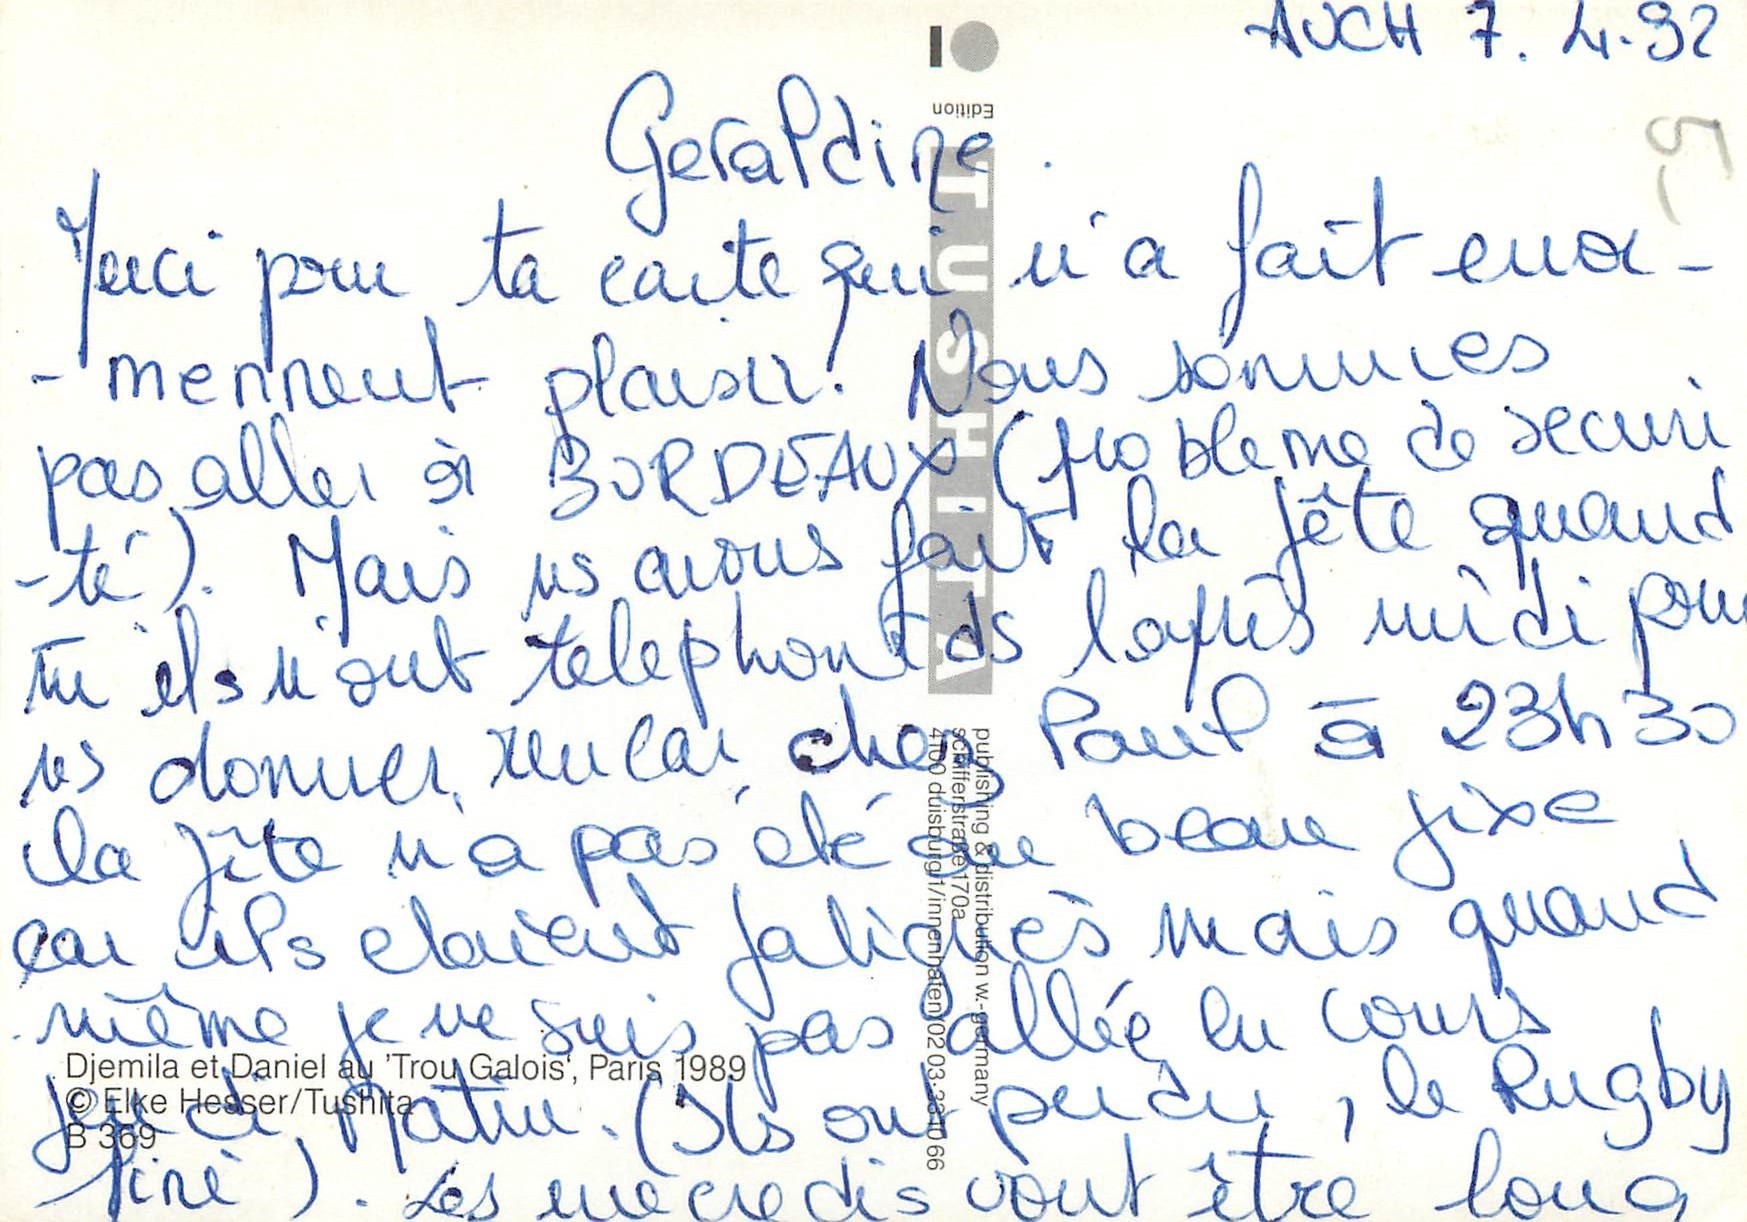 AUCH 7.4.92
Geraldine.
Merci pour ta carte qui m'a fait enor-
-mennent plaisir! Nous sommes
pas aller à BORDEAUX (probleme de securi
-té). Mais ns avons fait la fête quand
tu ils m'ont telephoné ds l'après midi pour
ns donner rencar chez Paul à 23h30
la fête n'a pas été au beau fixe
car ils etaient fatigués mais quand
même je ne suis pas allée en cours
jeudi Matin. (Ils ont perdu, le Rugby
finé). Les mecredis vont être long
5,
Edition
TUSHITA
publishing & distribution w.-germany
schifferstraße 170a
4100 duisburg 1/innenhafen/0203-334066
Djemila et Daniel au 'Trou Galois', Paris 1989
© Elke Hesser/Tushita
B 369